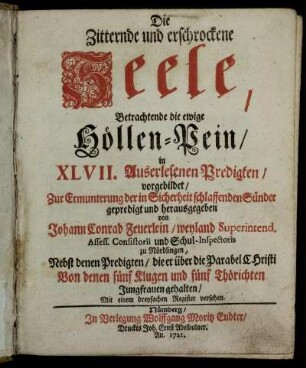 Die
Zitternde und erschrockene
Seele,
Betrachtende die ewige
Höllen-Pein/
in
XLVII. Auserlesenen Predigten/
vorgebildet/
Zur Ermunterung der in Sicherheit schlaffenden Sünder
gepredigt und herausgegeben
von
Johann Conrad Feuerlein/ weyland Superintend.
Assess. Consistorii und Schul-Inspectoris
zu Nördlingen,
Nebst denen Predigten/ die er über die Parabel Christi
Von denen fünf Klugen und fünf Thörichten
Jungfrauen gehalten/
Mit einem dreyfachen Register versehen.
Nürnberg/
In Verlegung Wolffgang Moritz Endter/
Druckts Joh. Ernst Adelbulner.
An. 1721.